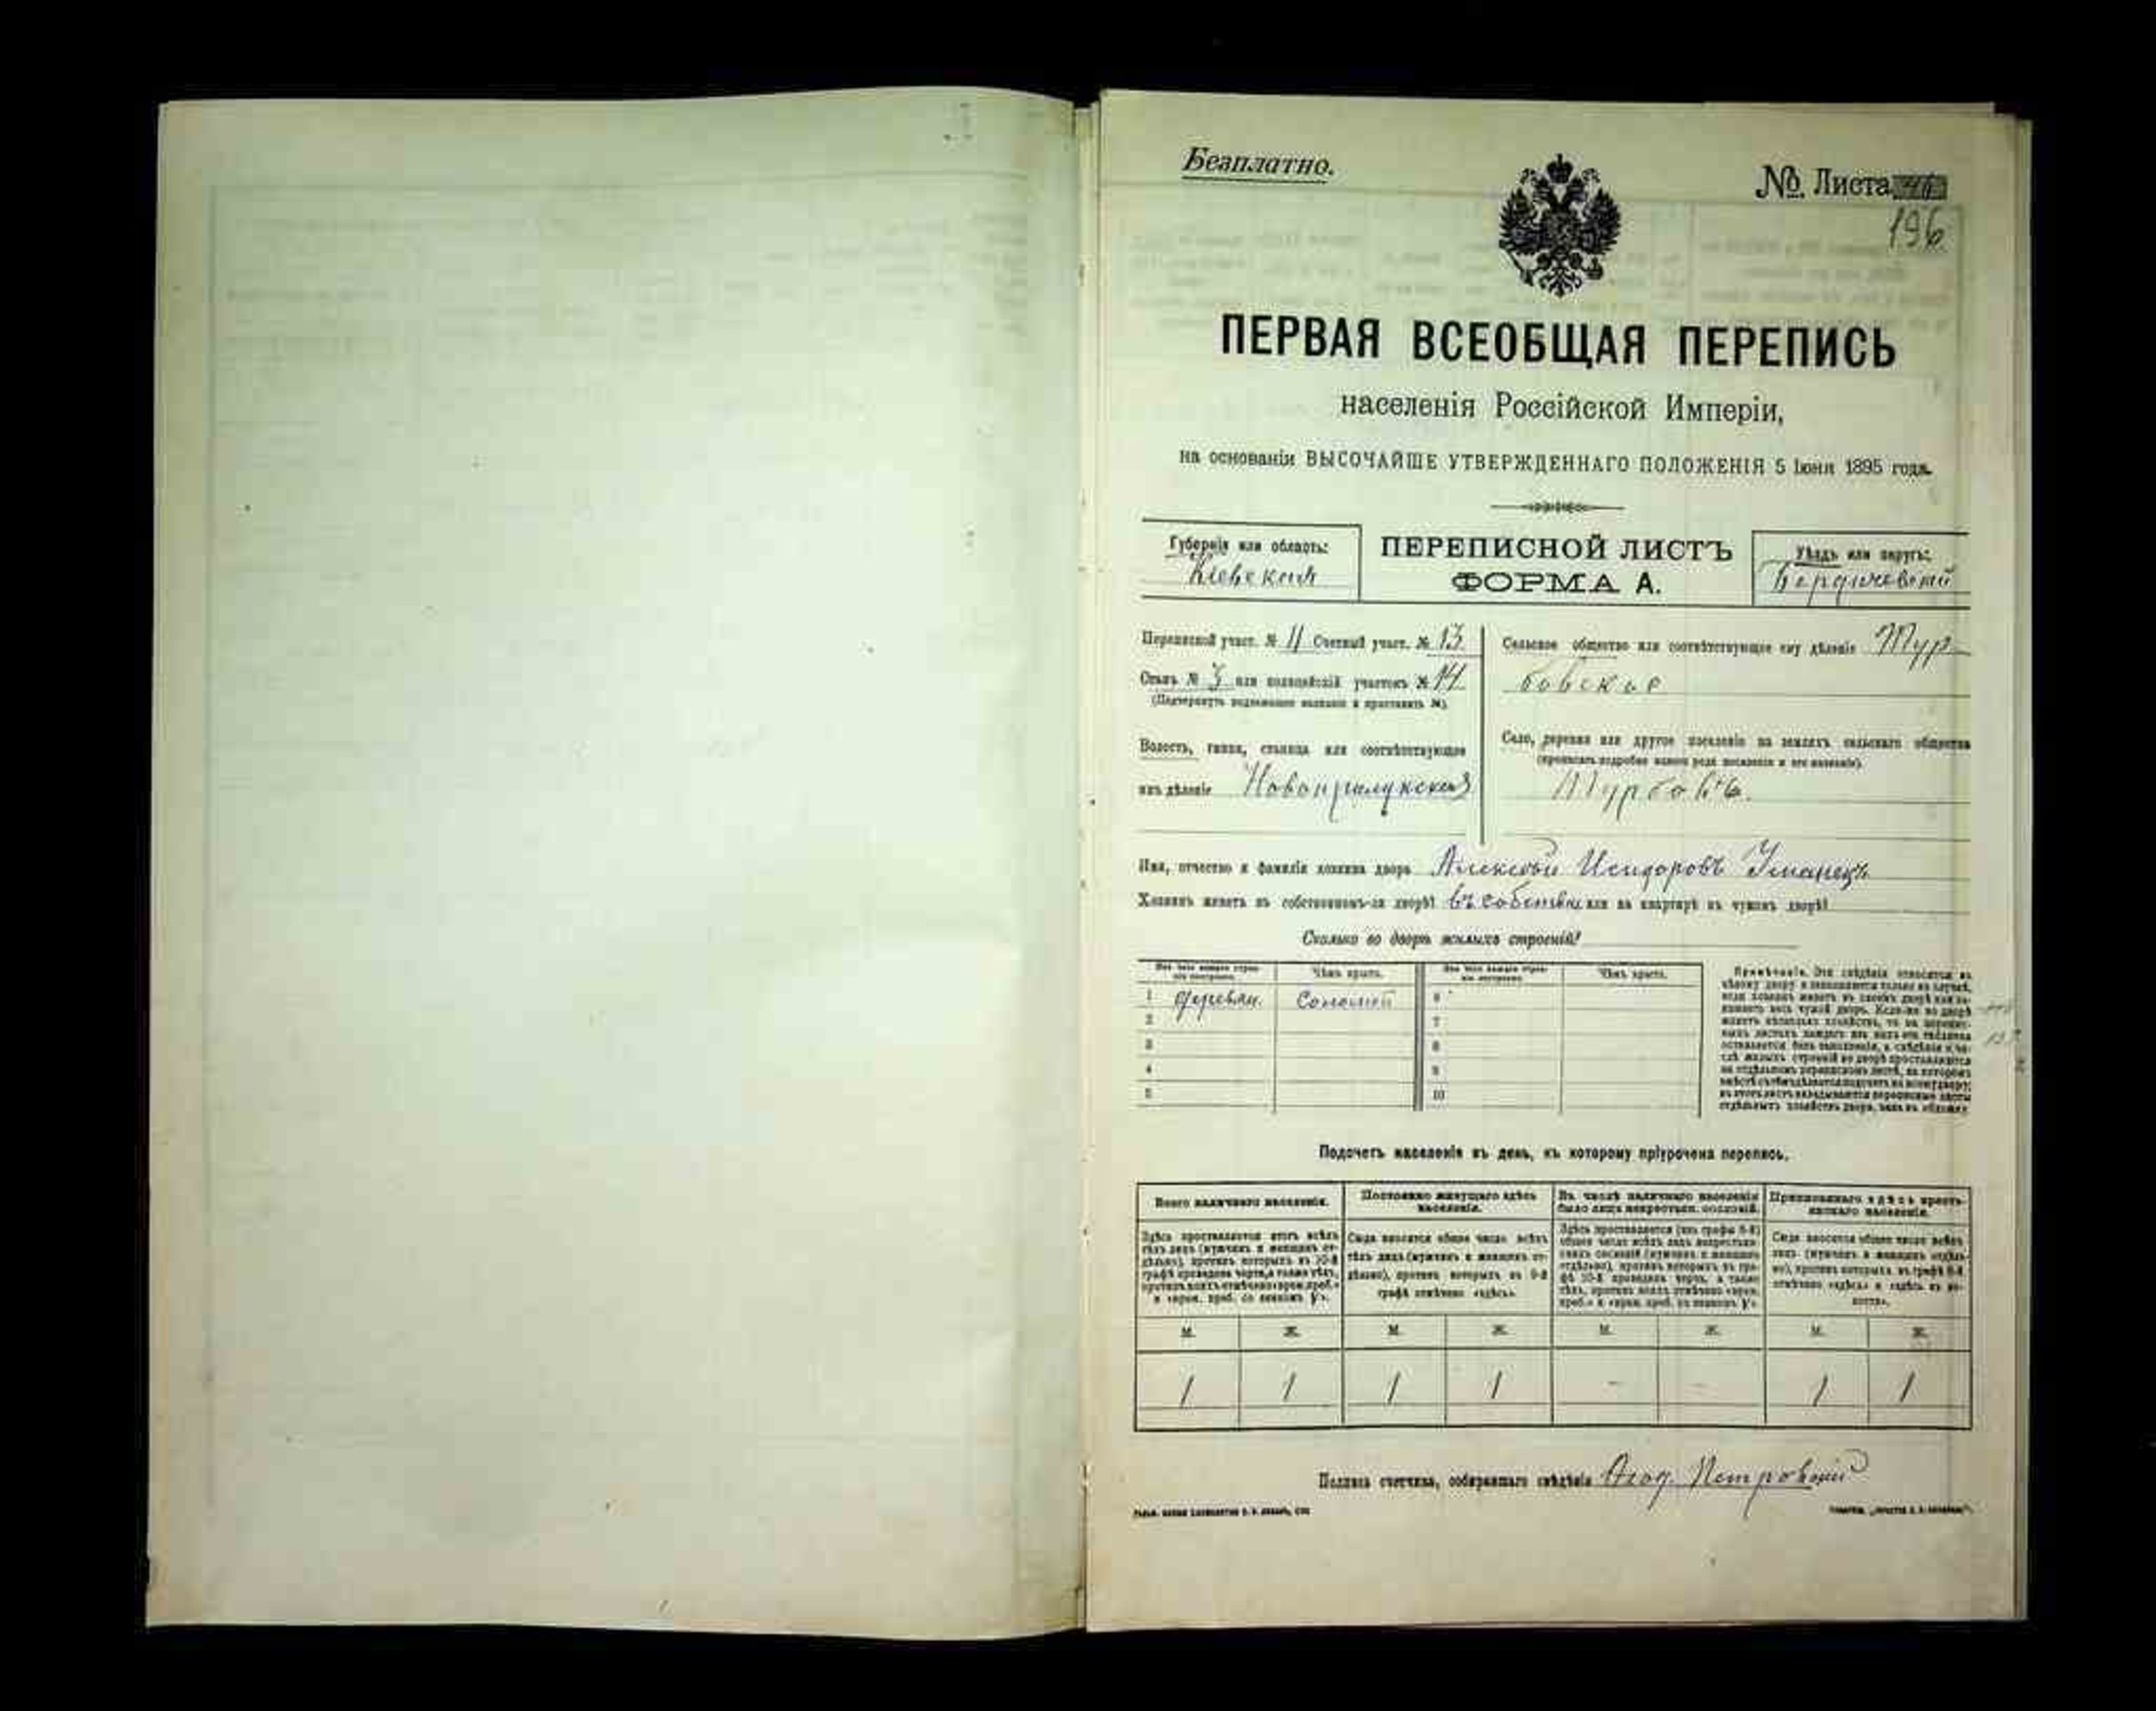 Безплатно.
№ Листа
196
ПЕРВАЯ ВСЕОБЩАЯ ПЕРЕПИСЬ
населенія Россійской Имперіи,
на основаніи ВЫСОЧАЙШЕ УТВЕРЖДЕННАГО ПОЛОЖЕНІЯ 5 Іюня 1895 года.
Губернія или область:
Кіевская
ПЕРЕПИСНОЙ ЛИСТЪ
ФОРМА А.
Уѣздъ или округъ:
Бердичевскій
Переписной участ. № 11 Счетный участ. № 13
Станъ № 3 или полицейскій участокъ № 14
(Подчеркнуть надлежащее названіе и проставить №).
Волость, гмина, станица или соотвѣтствующее
имъ дѣленіе Новоприлукская
Сельское общество или соотвѣтствующее ему дѣленіе Тур-
бовское
Село, деревня или другое поселеніе на земляхъ сельскаго общества
(прописать подробно какого рода поселеніе и его названіе).
Турбовъ.
Имя, отчество и фамилія хозяина двора Алексѣй Исидоровъ Уманецъ
Хозяинъ живетъ въ собственномъ-ли дворѣ? въ собствен или на квартирѣ въ чужомъ дворѣ?
Сколько во дворѣ жилыхъ строеній?
Изъ чего каждое строе-
ніе построено.
Чѣмъ крыто.
Изъ чего каждое строе-
ніе построено.
Чѣмъ крыто.
1 деревян. Соломой 6
2 7
3 8
4 9
5 10
Примѣчаніе. Эти свѣдѣнія относятся къ
цѣлому двору и заполняются только въ случаѣ,
если хозяинъ живетъ въ своемъ дворѣ или за-
нимаетъ весь чужой дворъ. Если-же во дворѣ
живетъ нѣсколько хозяйствъ, то на перепис-
ныхъ листахъ каждаго изъ нихъ эта табличка
оставляется безъ заполненія, а свѣдѣнія о чи-
слѣ жилыхъ строеній во дворѣ проставляются
на отдѣльномъ переписномъ листѣ, на которомъ
вмѣстѣ съ тѣмъ дѣлается подсчетъ по всему двору;
въ этотъ листъ вкладываются переписные листы
отдѣльныхъ хозяйствъ двора, какъ въ обложку.
Подсчетъ населенія въ день, къ которому пріурочена перепись.
Всего наличнаго населенія.
Постоянно живущаго здѣсь
населенія.
Въ числѣ наличнаго населенія
было лицъ некрестьян. сословій.
Приписаннаго здѣсь кресть-
янскаго населенія.
Здѣсь проставляется итогъ всѣхъ
тѣхъ лицъ (мужчинъ и женщинъ от-
дѣльно), противъ которыхъ въ 10-й
графѣ проведена черта, а также тѣхъ,
противъ коихъ отмѣчено «врем. преб.»
Сюда вносится общее число всѣхъ
тѣхъ лицъ (мужчинъ и женщинъ от-
дѣльно), противъ которыхъ въ 9-й
графѣ отмѣчено «здѣсь».
Здѣсь проставляется (изъ графы 8-й)
общее число всѣхъ лицъ некрестьян-
скихъ сословій (мужчинъ и женщинъ
отдѣльно), противъ которыхъ въ гра-
фѣ 10-й проведена черта, а также
тѣхъ, противъ коихъ отмѣчено «врем.
Сюда вносится общее число всѣхъ
лицъ (мужчинъ и женщинъ отдѣль-
но), противъ которыхъ въ графѣ 8-й
отмѣчено «здѣсь» и «здѣсь въ во-
лости».
М. Ж. М. Ж. М. Ж. М. Ж.
1 1 1 1 - - 1 1
Подпись счетчика, собиравшаго свѣдѣнія Петровскій